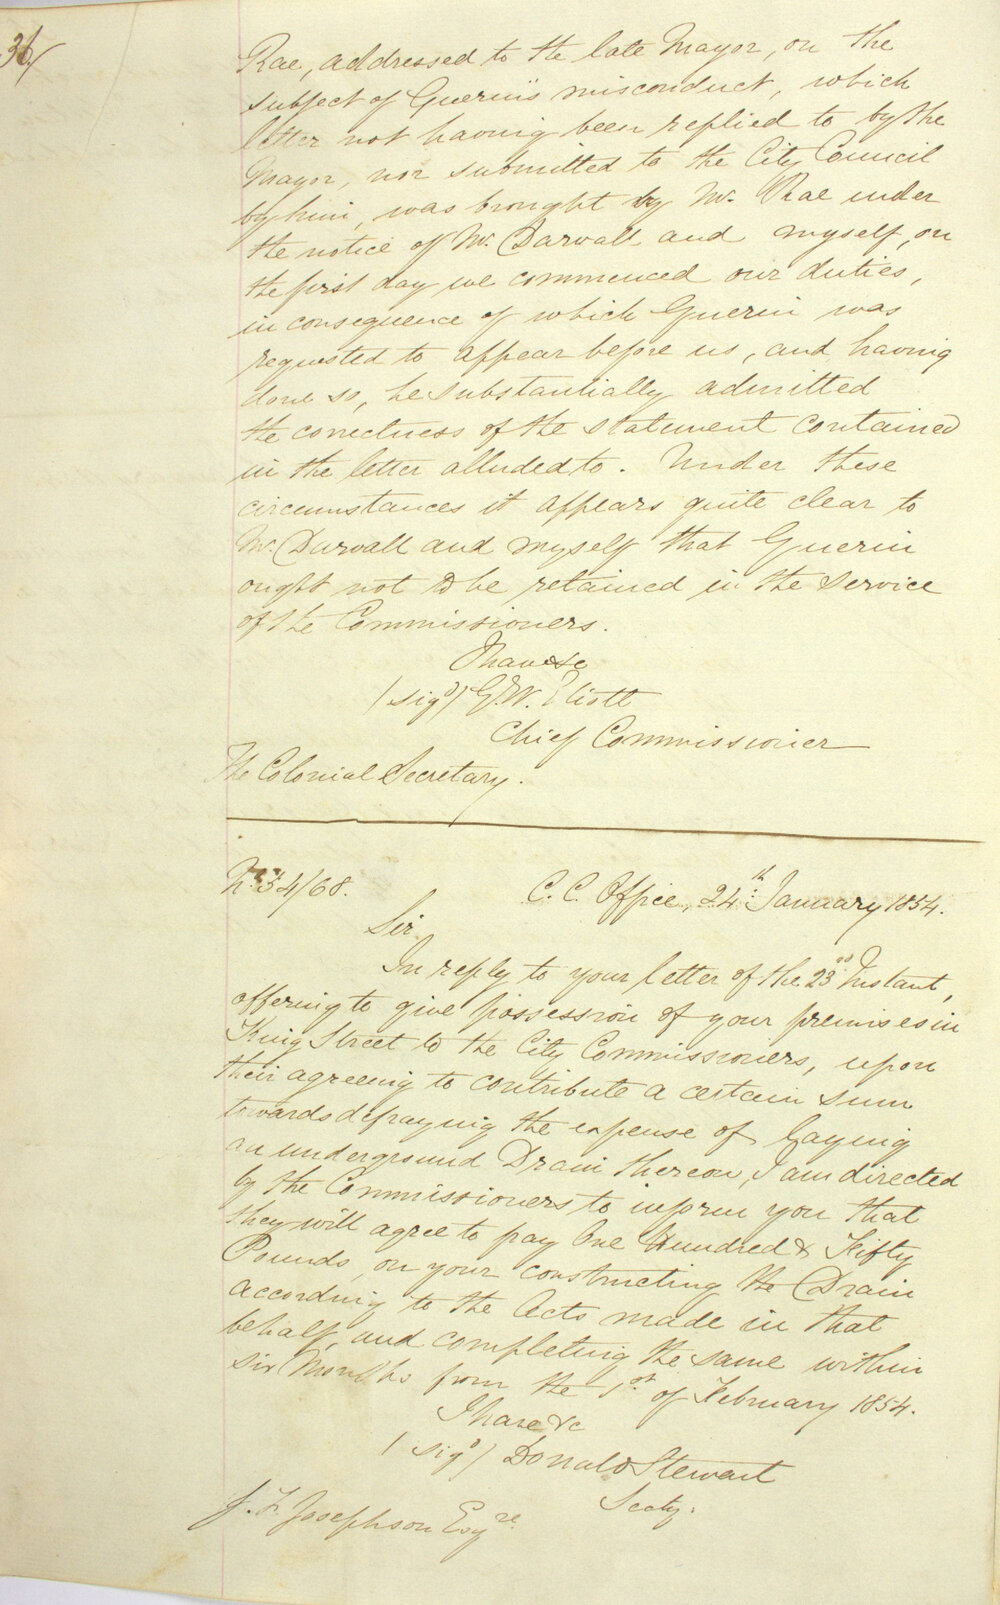 36/
Rae, addressed to the late Mayor, on the
subject of Guerin's misconduct, which
letter not having been replied to by the
Mayor, nor submitted to the City Council
by him, was brought by Mr. Rae under
the notice of Mr. Darvall and myself, on
the first day we commenced our duties,
in consequence of which Guerin was
requested to appear before us, and having
done so, he substantially admitted
the correctness of the statement contained
in the letter alluded to. Under these
circumstances it appears quite clear to
Mr. Darvall and myself that Guerin
ought not to be retained in the service
of the Commissioners.
I have &c
(sigd) G. W. Eliott
Chief Commissioner
The Colonial Secretary.
No. 54/68.
C. C. Office, 24th January 1854.
Sir
In reply to your letter of the 23rd Instant,
offering to give possession of your premises in
King Street to the City Commissioners, upon
their agreeing to contribute a certain sum
towards defraying the expense of laying
an underground Drain thereon, I am directed
by the Commissioners to inform you that
they will agree to pay One Hundred & Fifty
Pounds, on your constructing the Drain
according to the Acts made in that
behalf, and completing the same within
six Months from the 1st of February 1854.
I have &c
(sigd) Donald Stewart
Secty.
J. F. Josephson Esqre